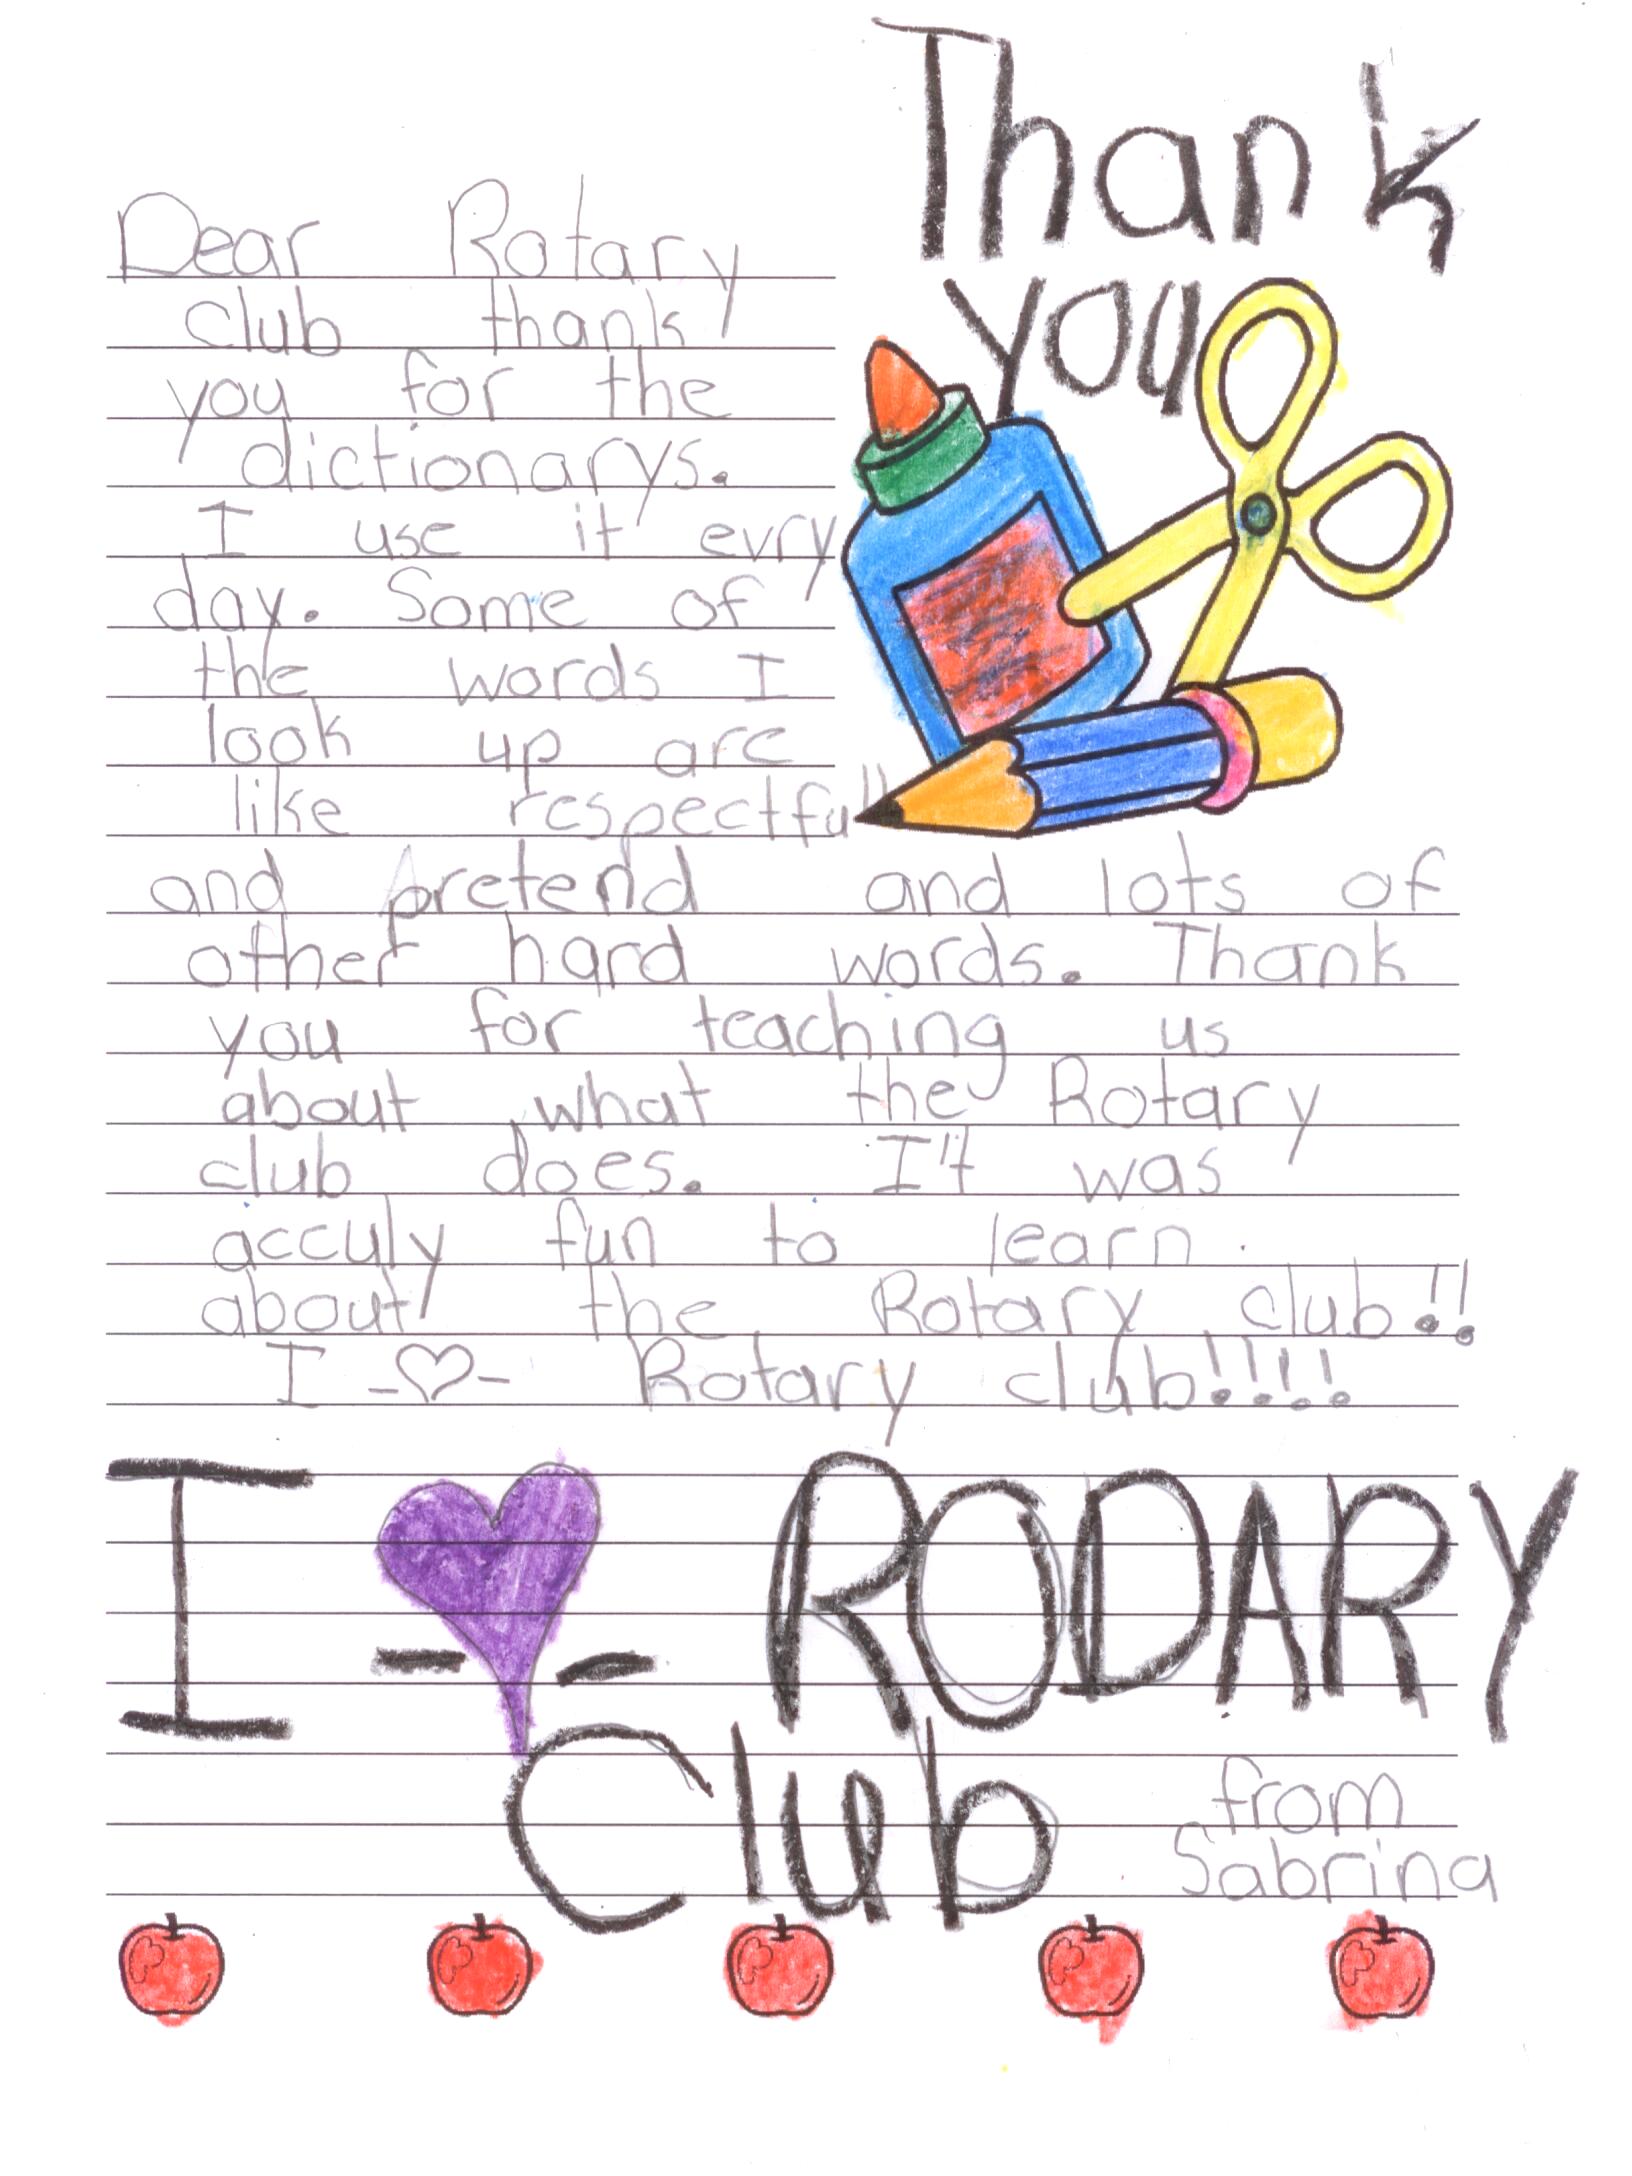 Thank
you
Dear Rotary
club thank
you for the
dictionarys.
I use it evry
day. Some of
the words I
look up are
like respectfull
and pretend and lots of
other hard words. Thank
you for teaching us
about what the Rotary
club does. I't was
acculy fun to learn
about the Rotary club!!
I -♡- Rotary club!!!!
I -♥- RODARY
Club
from
Sabrina